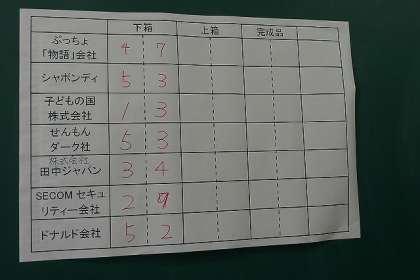 下箱 上箱 完成品
ぷっちょ
「物語」会社 4 7
シャボンディ 5 3
子どもの国
株式会社 1 3
せんもん
ダーク社 5 3
株式会社
田中ジャパン 3 4
SECOM セキュ
リティー会社 2
ドナルド会社 5 2